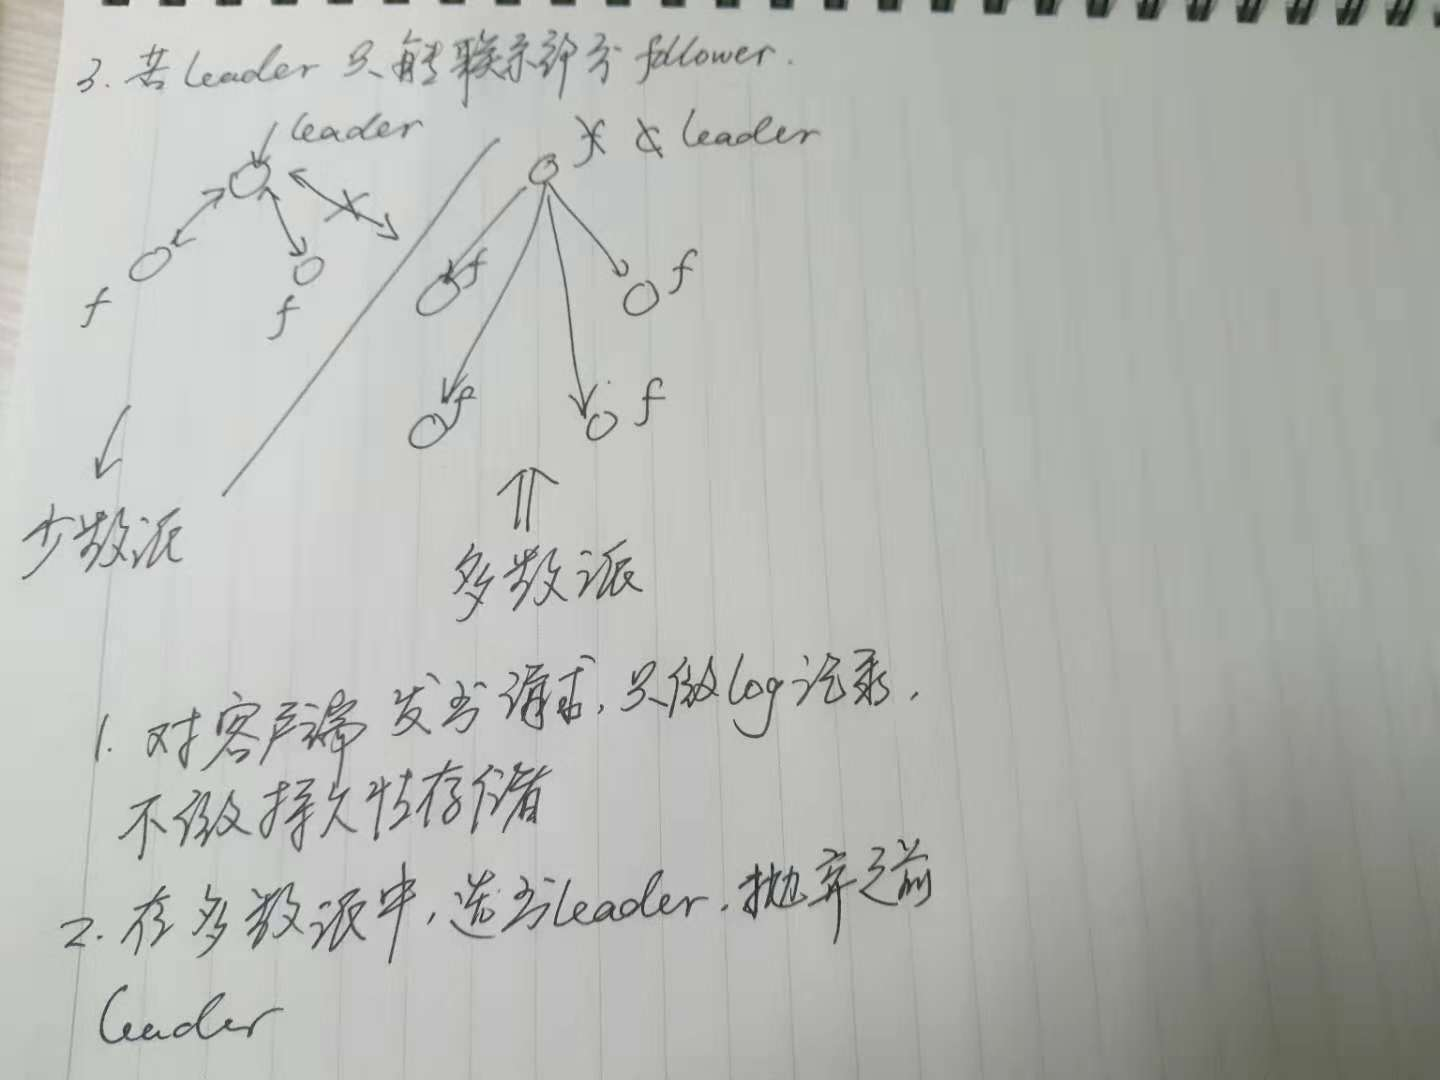 3. 若leader只能联系部分follower.
leader
leader
f
f
f
f
f
f
少数派
多数派
1. 对客户端发出请求,只做log记录,
不做持久性存储
2. 在多数派中,选出leader,抛弃之前
leader